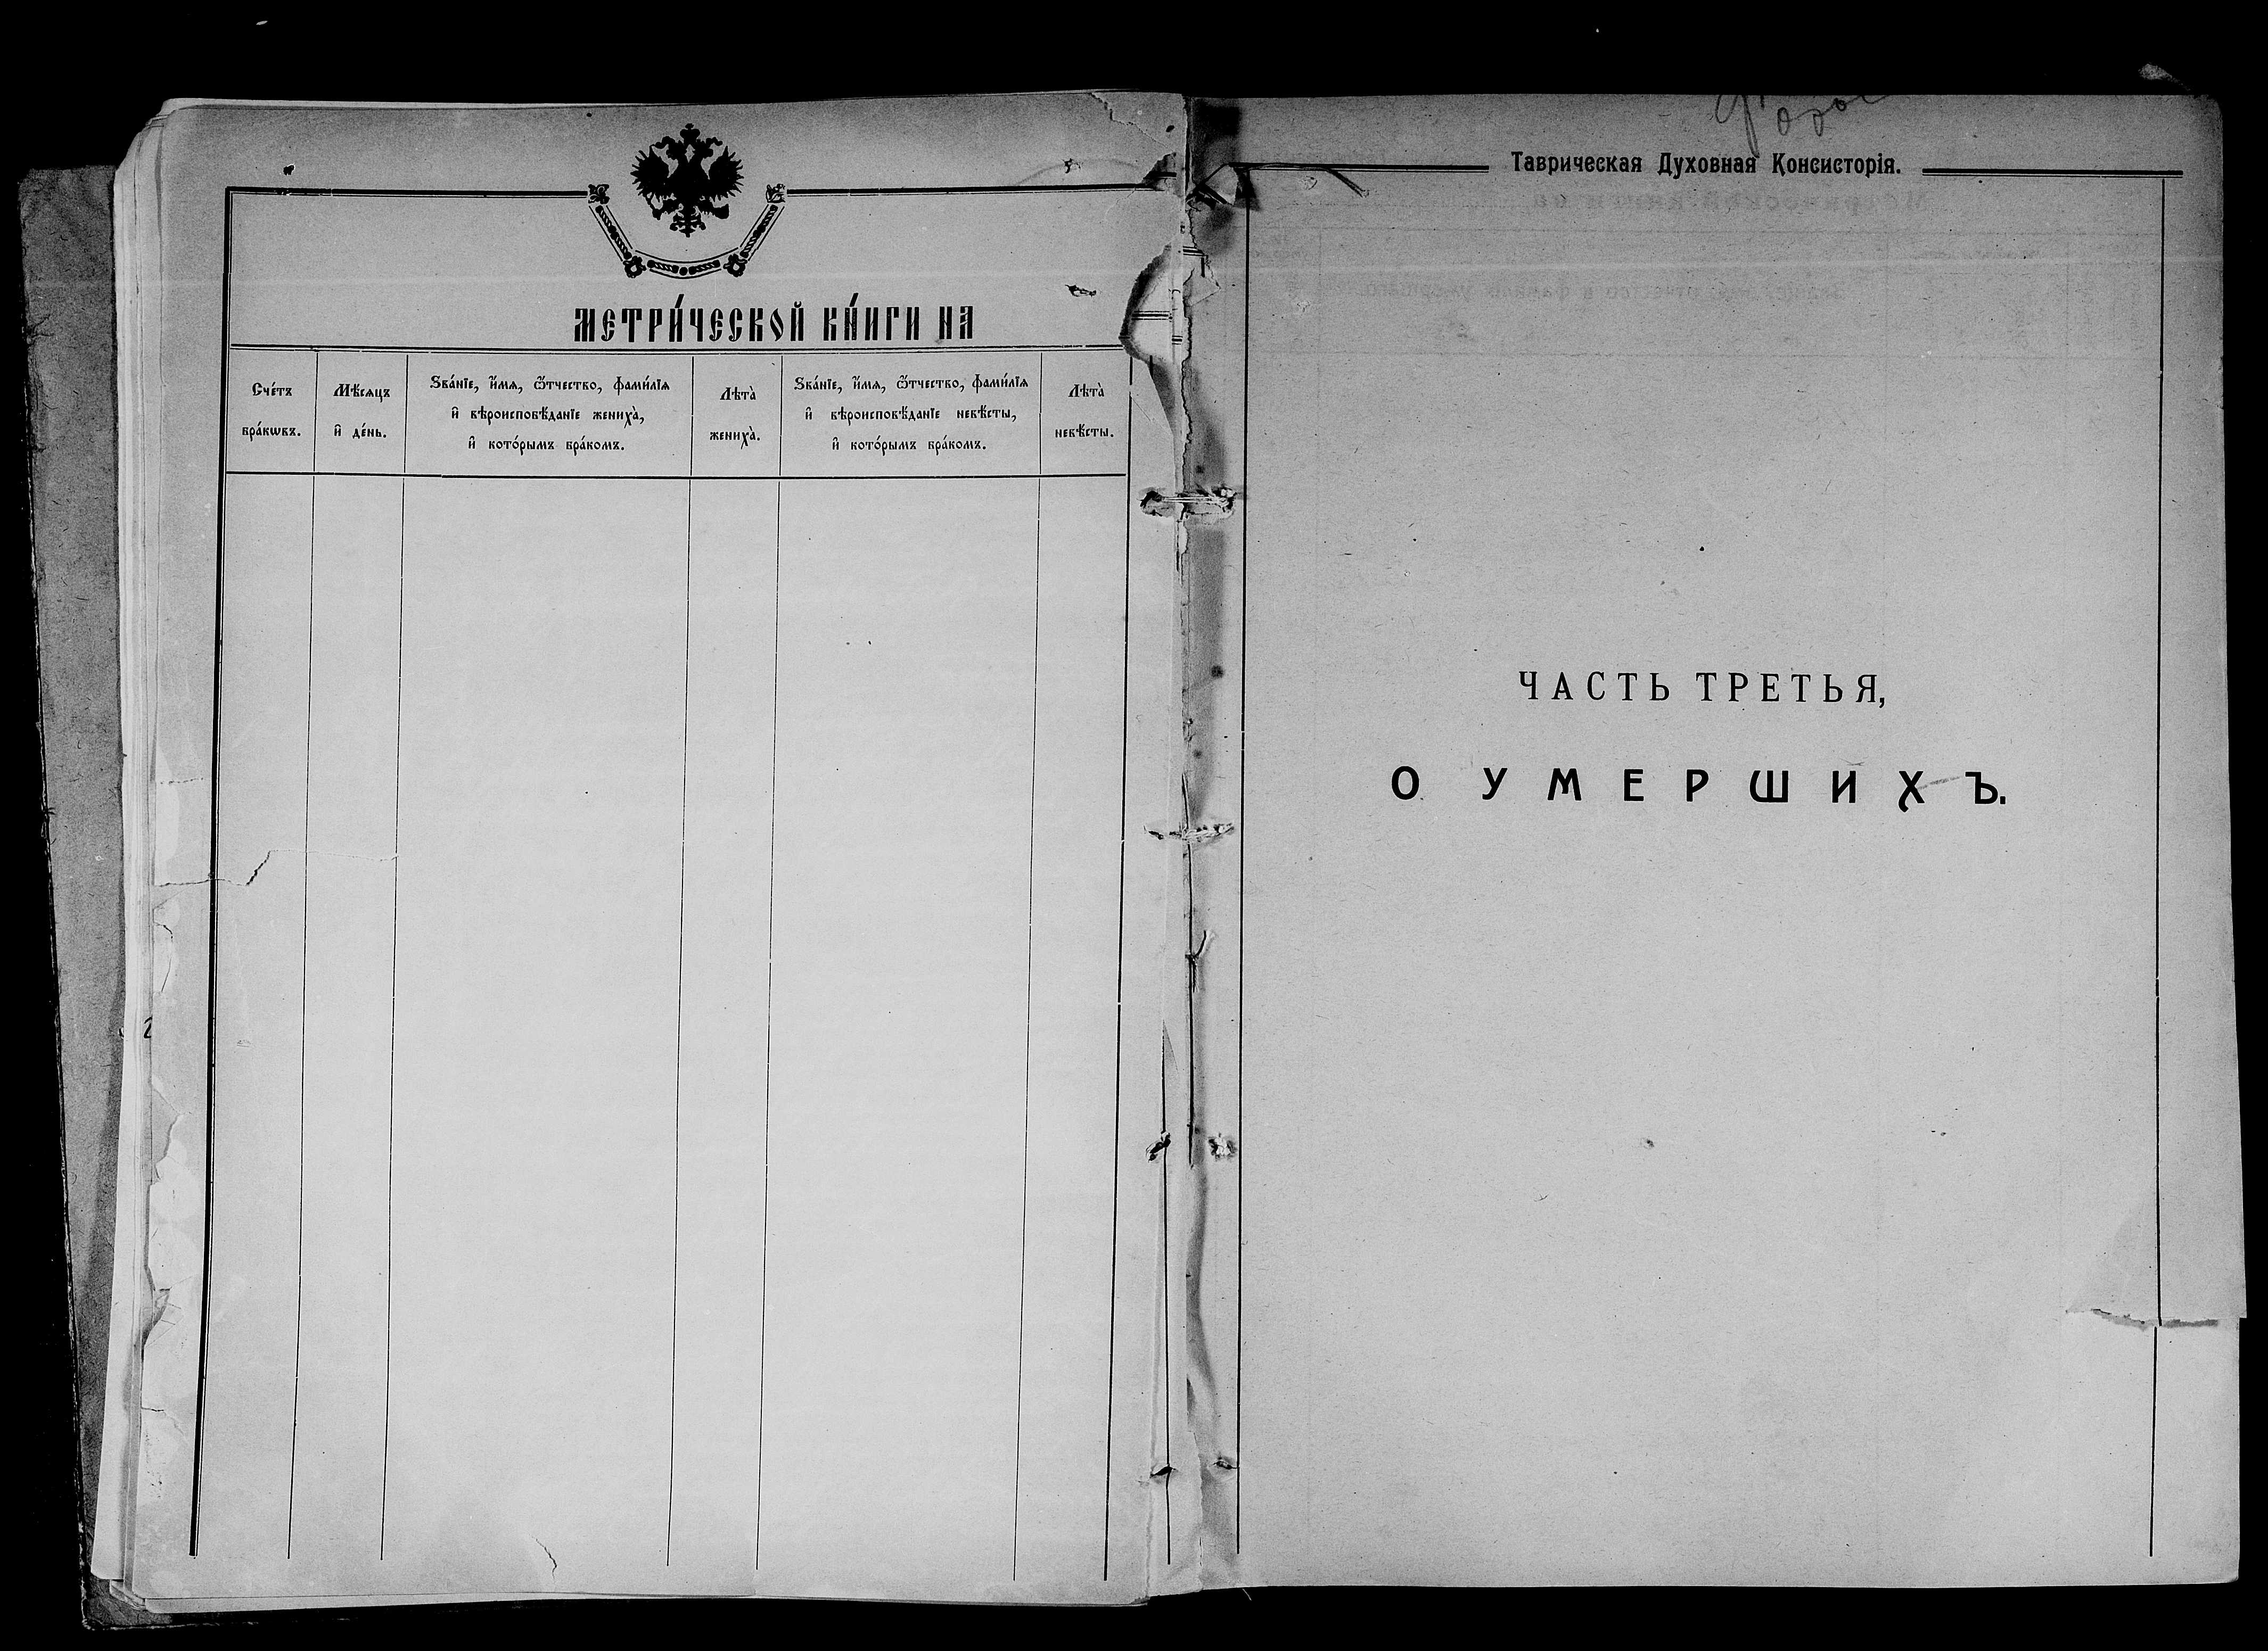 МЕТРИ́ЧЕСКОЙ КНИ́ГИ НА
Сче́тъ
бра́кѡвъ.
Мѣ́сѧцъ
и҆ де́нь.
Ѕва́нїе, и҆́мѧ, ѻ҆́тчество, фами́лїѧ
и҆ вѣроисповѣ́данїе жениха̀,
и҆ кото́рымъ бра́комъ.
Лѣта̀
жениха̀.
Ѕва́нїе, и҆́мѧ, ѻ҆́тчество, фами́лїѧ
и҆ вѣроисповѣ́данїе невѣ́сты,
и҆ кото́рымъ бра́комъ.
Лѣта̀
невѣ́сты.
Таврическая Духовная Консисторія.
ЧАСТЬ ТРЕТЬЯ,
О УМЕРШИХЪ.